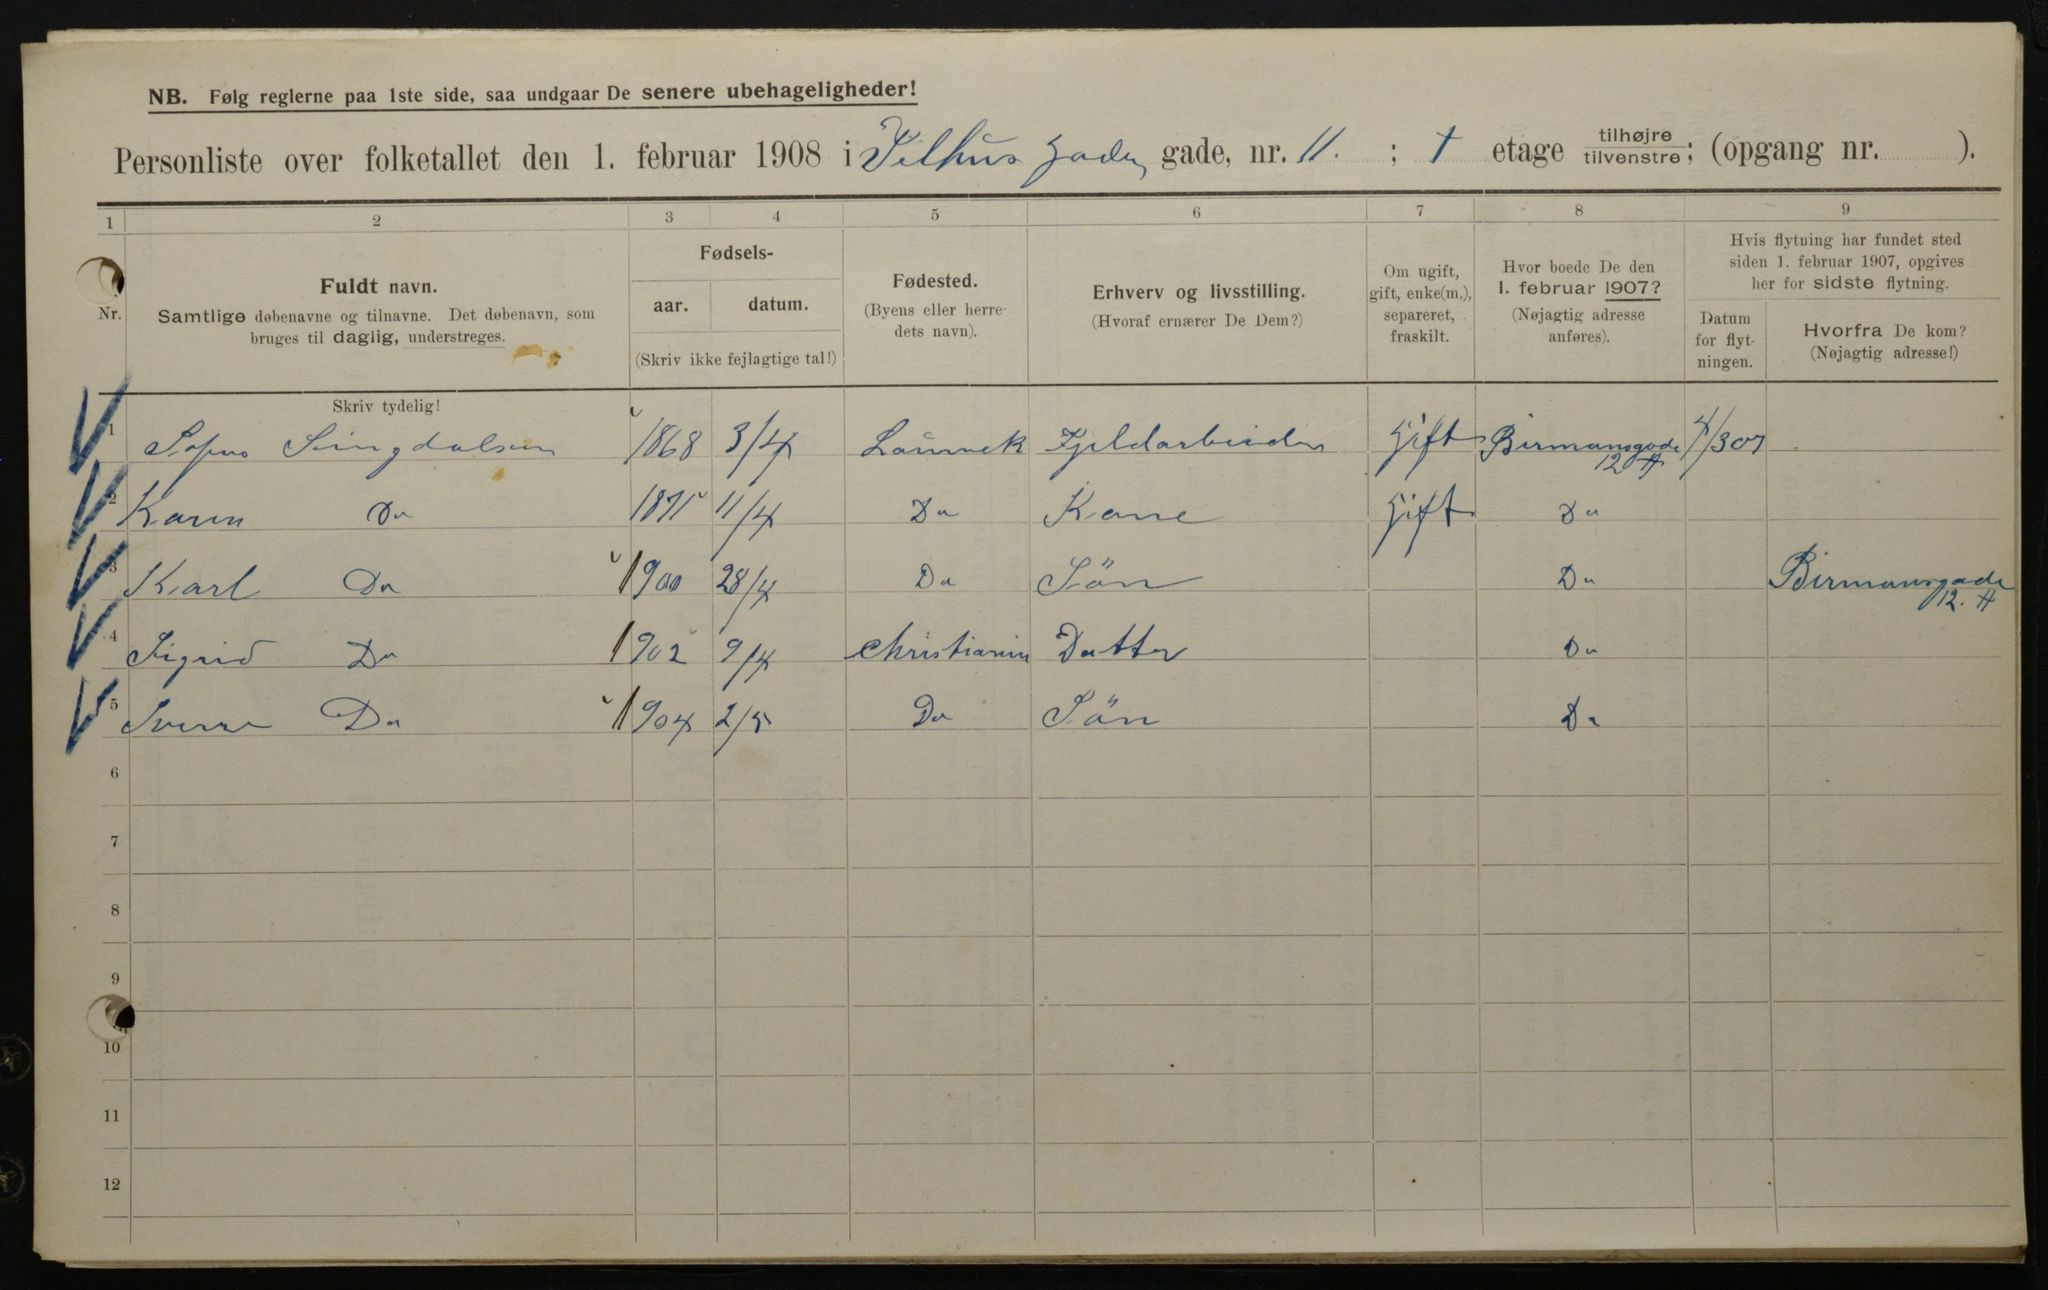 NB. Følg reglerne paa 1ste side, saa undgaar De senere ubehageligheder!
Personliste over folketallet den 1. februar 1908 i gade, nr. 11. ; 1 etage tilhøjre/tilvenstre; (opgang nr. ).
1 2 3 4 5 6 7 8 9
Nr.
Fuldt navn.
Samtlige døbenavne og tilnavne. Det døbenavn, som
bruges til daglig, understreges.
Skriv tydelig!
Fødsels-
aar. datum.
(Skriv ikke fejlagtige tal!)
Fødested.
(Byens eller herre-
dets navn).
Erhverv og livsstilling.
(Hvoraf ernærer De Dem?)
Om ugift,
gift, enke(m.),
separeret,
fraskilt.
Hvor boede De den
1. februar 1907?
(Nøjagtig adresse
anføres).
Hvis flytning har fundet sted
siden 1. februar 1907, opgives
her for sidste flytning.
Datum
for flyt-
ningen.
Hvorfra De kom?
(Nøjagtig adresse!)
1 Sofus Singdalsen 1868 3/4 Laurvek Fjeldarbeider Gift Birmansgade
12
2 Karen Do 1871 11/4 Do Kone Gift Do
3 Karl Do 1900 28/4 Do Sön Do Birmansgade
12.
4 Sigrid Do 1902 9/4 Christiania Datter Do
5 Sverre Do 1904 2/5 Do Sön Do
6
7
8
9
10
11
12